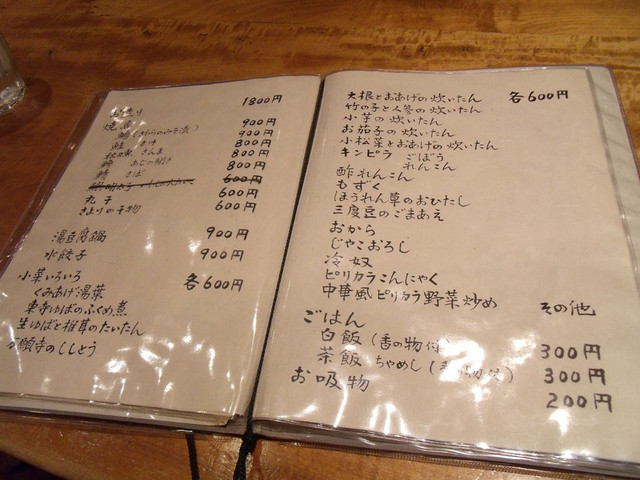 造り 1800円
焼魚 900円
鯛（ 900円
鮭 さけ 800円
秋刀魚 さんま 800円
鯵 あじの開き 800円
鯖 さば
600円
丸干 600円
さよりの干物 600円
湯豆腐鍋 900円
水餃子 900円
小菜いろいろ 各600円
くみあげ湯葉
東寺ゆばのふくめ煮
生ゆばと椎茸のたいたん
願寺のししとう
大根とおあげの炊いたん 各600円
竹の子と人参の炊いたん
小芋の炊いたん
お茄子の炊いたん
小松菜とおあげの炊いたん
キンピラ ごぼう
れんこん
酢れんこん
もずく
ほうれん草のおひたし
三度豆のごまあえ
おから
じゃこおろし
冷奴
ピリカラこんにゃく
中華風ピリカラ野菜炒め
その他
ごはん
白飯（香の物付） 300円
茶飯 ちゃめし（香の物付） 300円
お吸物 200円